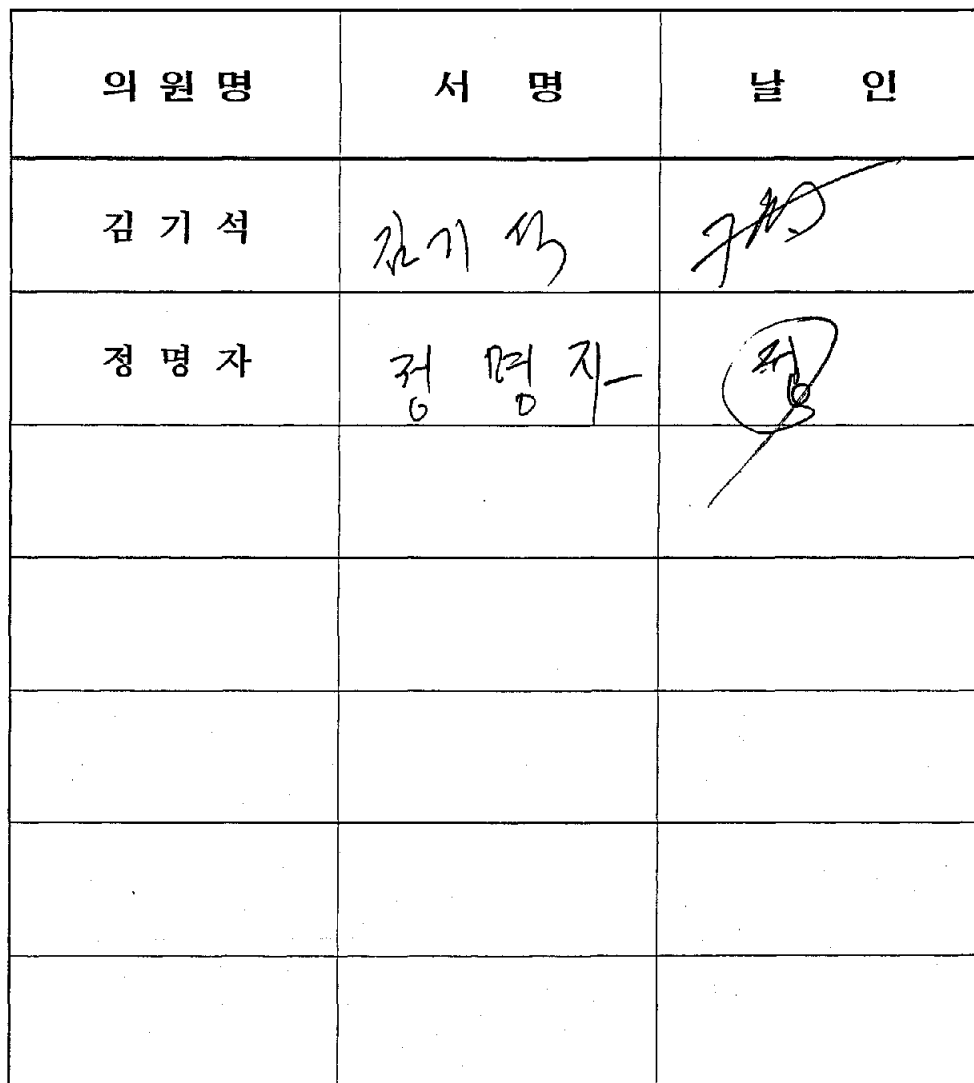 의원명 서 명 날 인
김기석 김기석
정명자 정명자 정